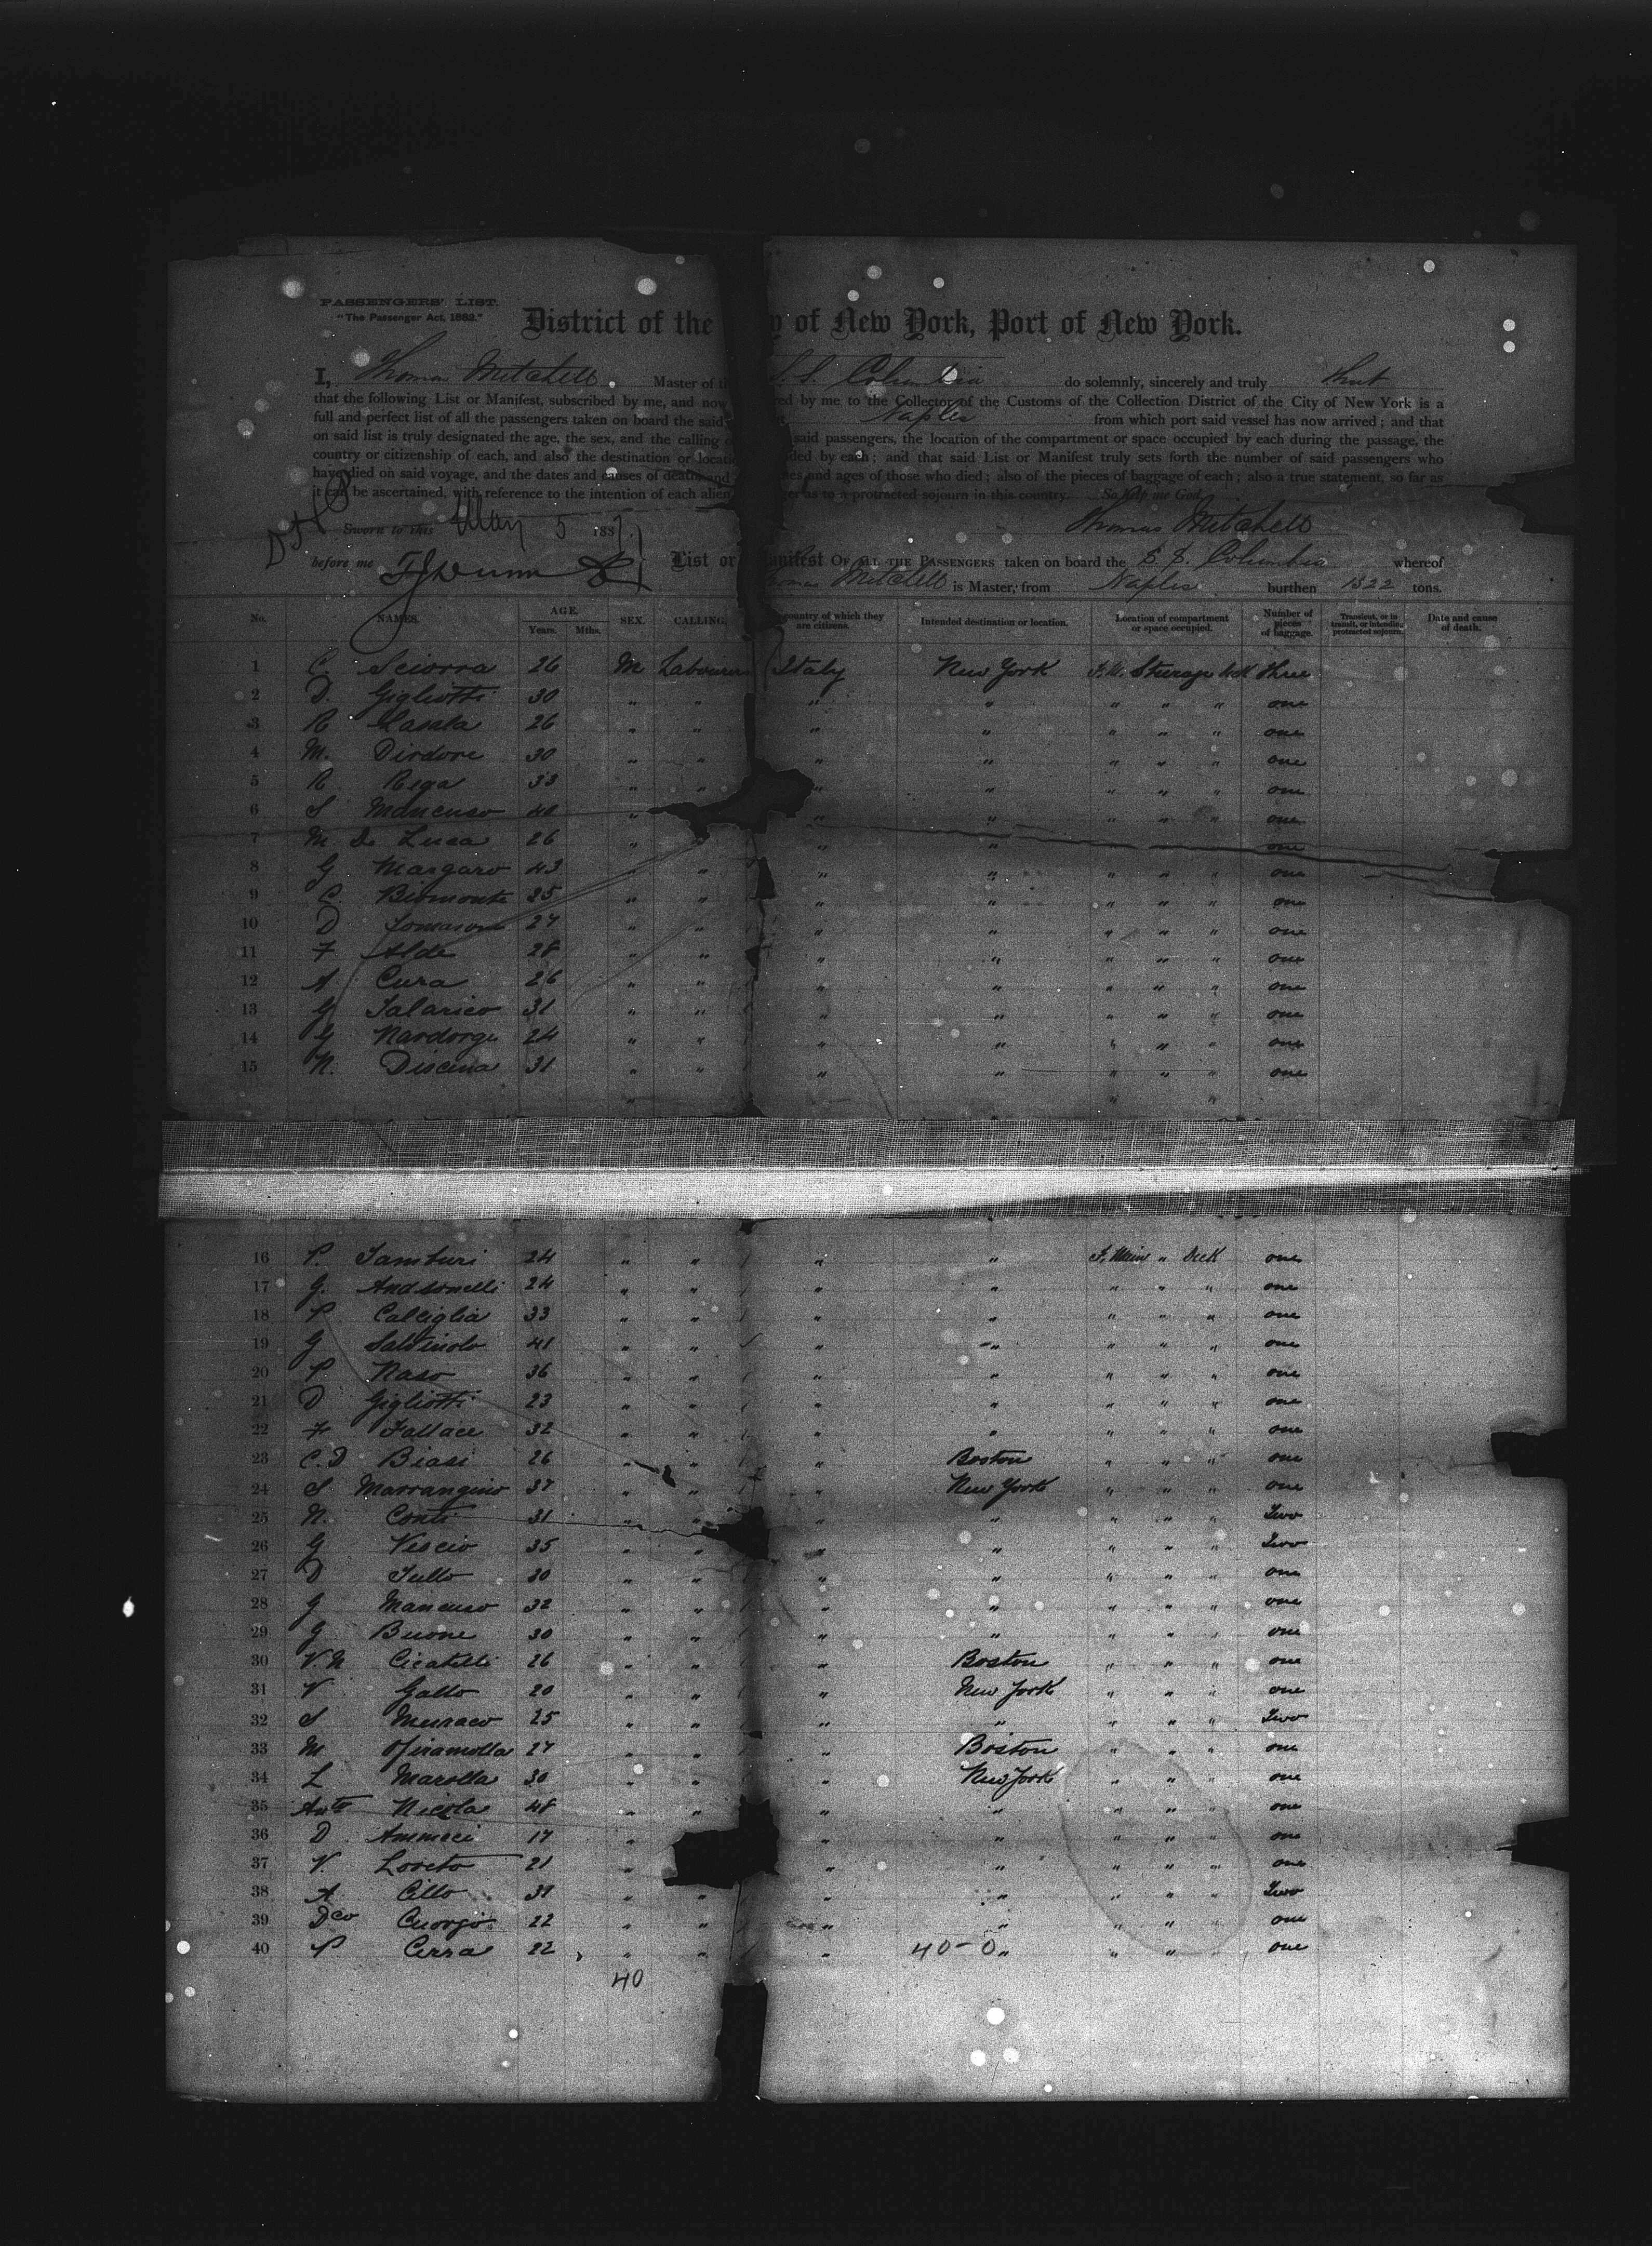 PASSENGERS' LIST.
"The Passenger Act, 1882."
District of the y of New York, Port of New York.
I, Thomas Mitchell Master of th S. S. Columbia do solemnly, sincerely and truly
that the following List or Manifest, subscribed by me, and now red by me to the Collector of the Customs of the Collection District of the City of New York is a
full and perfect list of all the passengers taken on board the said Naples from which port said vessel has now arrived; and that
on said list is truly designated the age, the sex, and the calling said passengers, the location of the compartment or space occupied by each during the passage, the
country or citizenship of each, and also the destination or locati ded by each; and that said List or Manifest truly sets forth the number of said passengers who
have died on said voyage, and the dates and causes of death, and es and ages of those who died; also of the pieces of baggage of each; also a true statement, so far as
it can be ascertained, with reference to the intention of each alien er as to a protracted sojourn in this country. So help me God.
Sworn to this May 5 1887 Thomas Mitchell
before me List or Manifest OF ALL THE PASSENGERS taken on board the S. S. Columbia whereof
omas Mitchell is Master, from Naples burthen 1322 tons.
No. NAMES. AGE. Years. Mths. SEX. CALLING. country of which they are citizens. Intended destination or location. Location of compartment or space occupied. Number of pieces of baggage. Transient, or in transit, or intending protracted sojourn. Date and cause of death.
1 C. Sciorra 26 M Labourers Italy New York Steerage three
2 D. Gigliotti 30 " " " " " " " one
3 R 26 " " " " " " " one
4 M. Dirdore 30 " " " " " " " one
5 R. Rega 33 " " " " " " " one
6 S Mancuso 40 " " " " " " one
7 M. De Luca 26 " " " " one
8 G Margaro 43 " " " " " " " one
9 C. Biomonte 25 " " " " " " " one
10 D Tomasone 27 " " " " " " " one
11 F Alde 28 " " " " " " " one
12 A Cura 26 " " " " " " " one
13 G Talarico 31 " " " " " " " one
14 G Nardorge 24 " " " " " " " one
15 N. Discina 31 " " " " " " " one
16 P. Tamburi 24 " " " " F. Main " Deck one
17 G. 24 " " " " " " " one
18 P Calciglia 33 " " " " " " " one
19 G 41 " " " " " " " one
20 P Naso 36 " " " " " " " one
21 D Gigliotti 23 " " " " " " " one
22 F Fallace 32 " " " " " " " one
23 C. D Biasi 26 " " " Boston " " " one
24 S Marrangino 37 " " " New York " " " one
25 N. Conti 31 " " " " " " " Two
26 G Viscio 35 " " " " " " " Two
27 D Tullo 30 " " " " " " " one
28 G Mancuso 32 " " " " " " " one
29 G Buone 30 " " " " " " " one
30 V. N Cicatelli 26 " " " Boston " " " one
31 V Gallo 20 " " " New York " " " one
32 S Musraco 25 " " " " " " " Two
33 M 27 " " " Boston " " " one
34 L Marolla 30 " " " New York " " " one
35 Anto Nicola 48 " " " " " " " one
36 D Ammaci 17 " " " " " " one
37 V. Loreto 21 " " " " " " one
38 A Cillo 39 " " " " " " " Two
39 Dco Cuorgo 22 " " " " " " " one
40 P Cerra 22 " " " 40-0 " " " " one
40